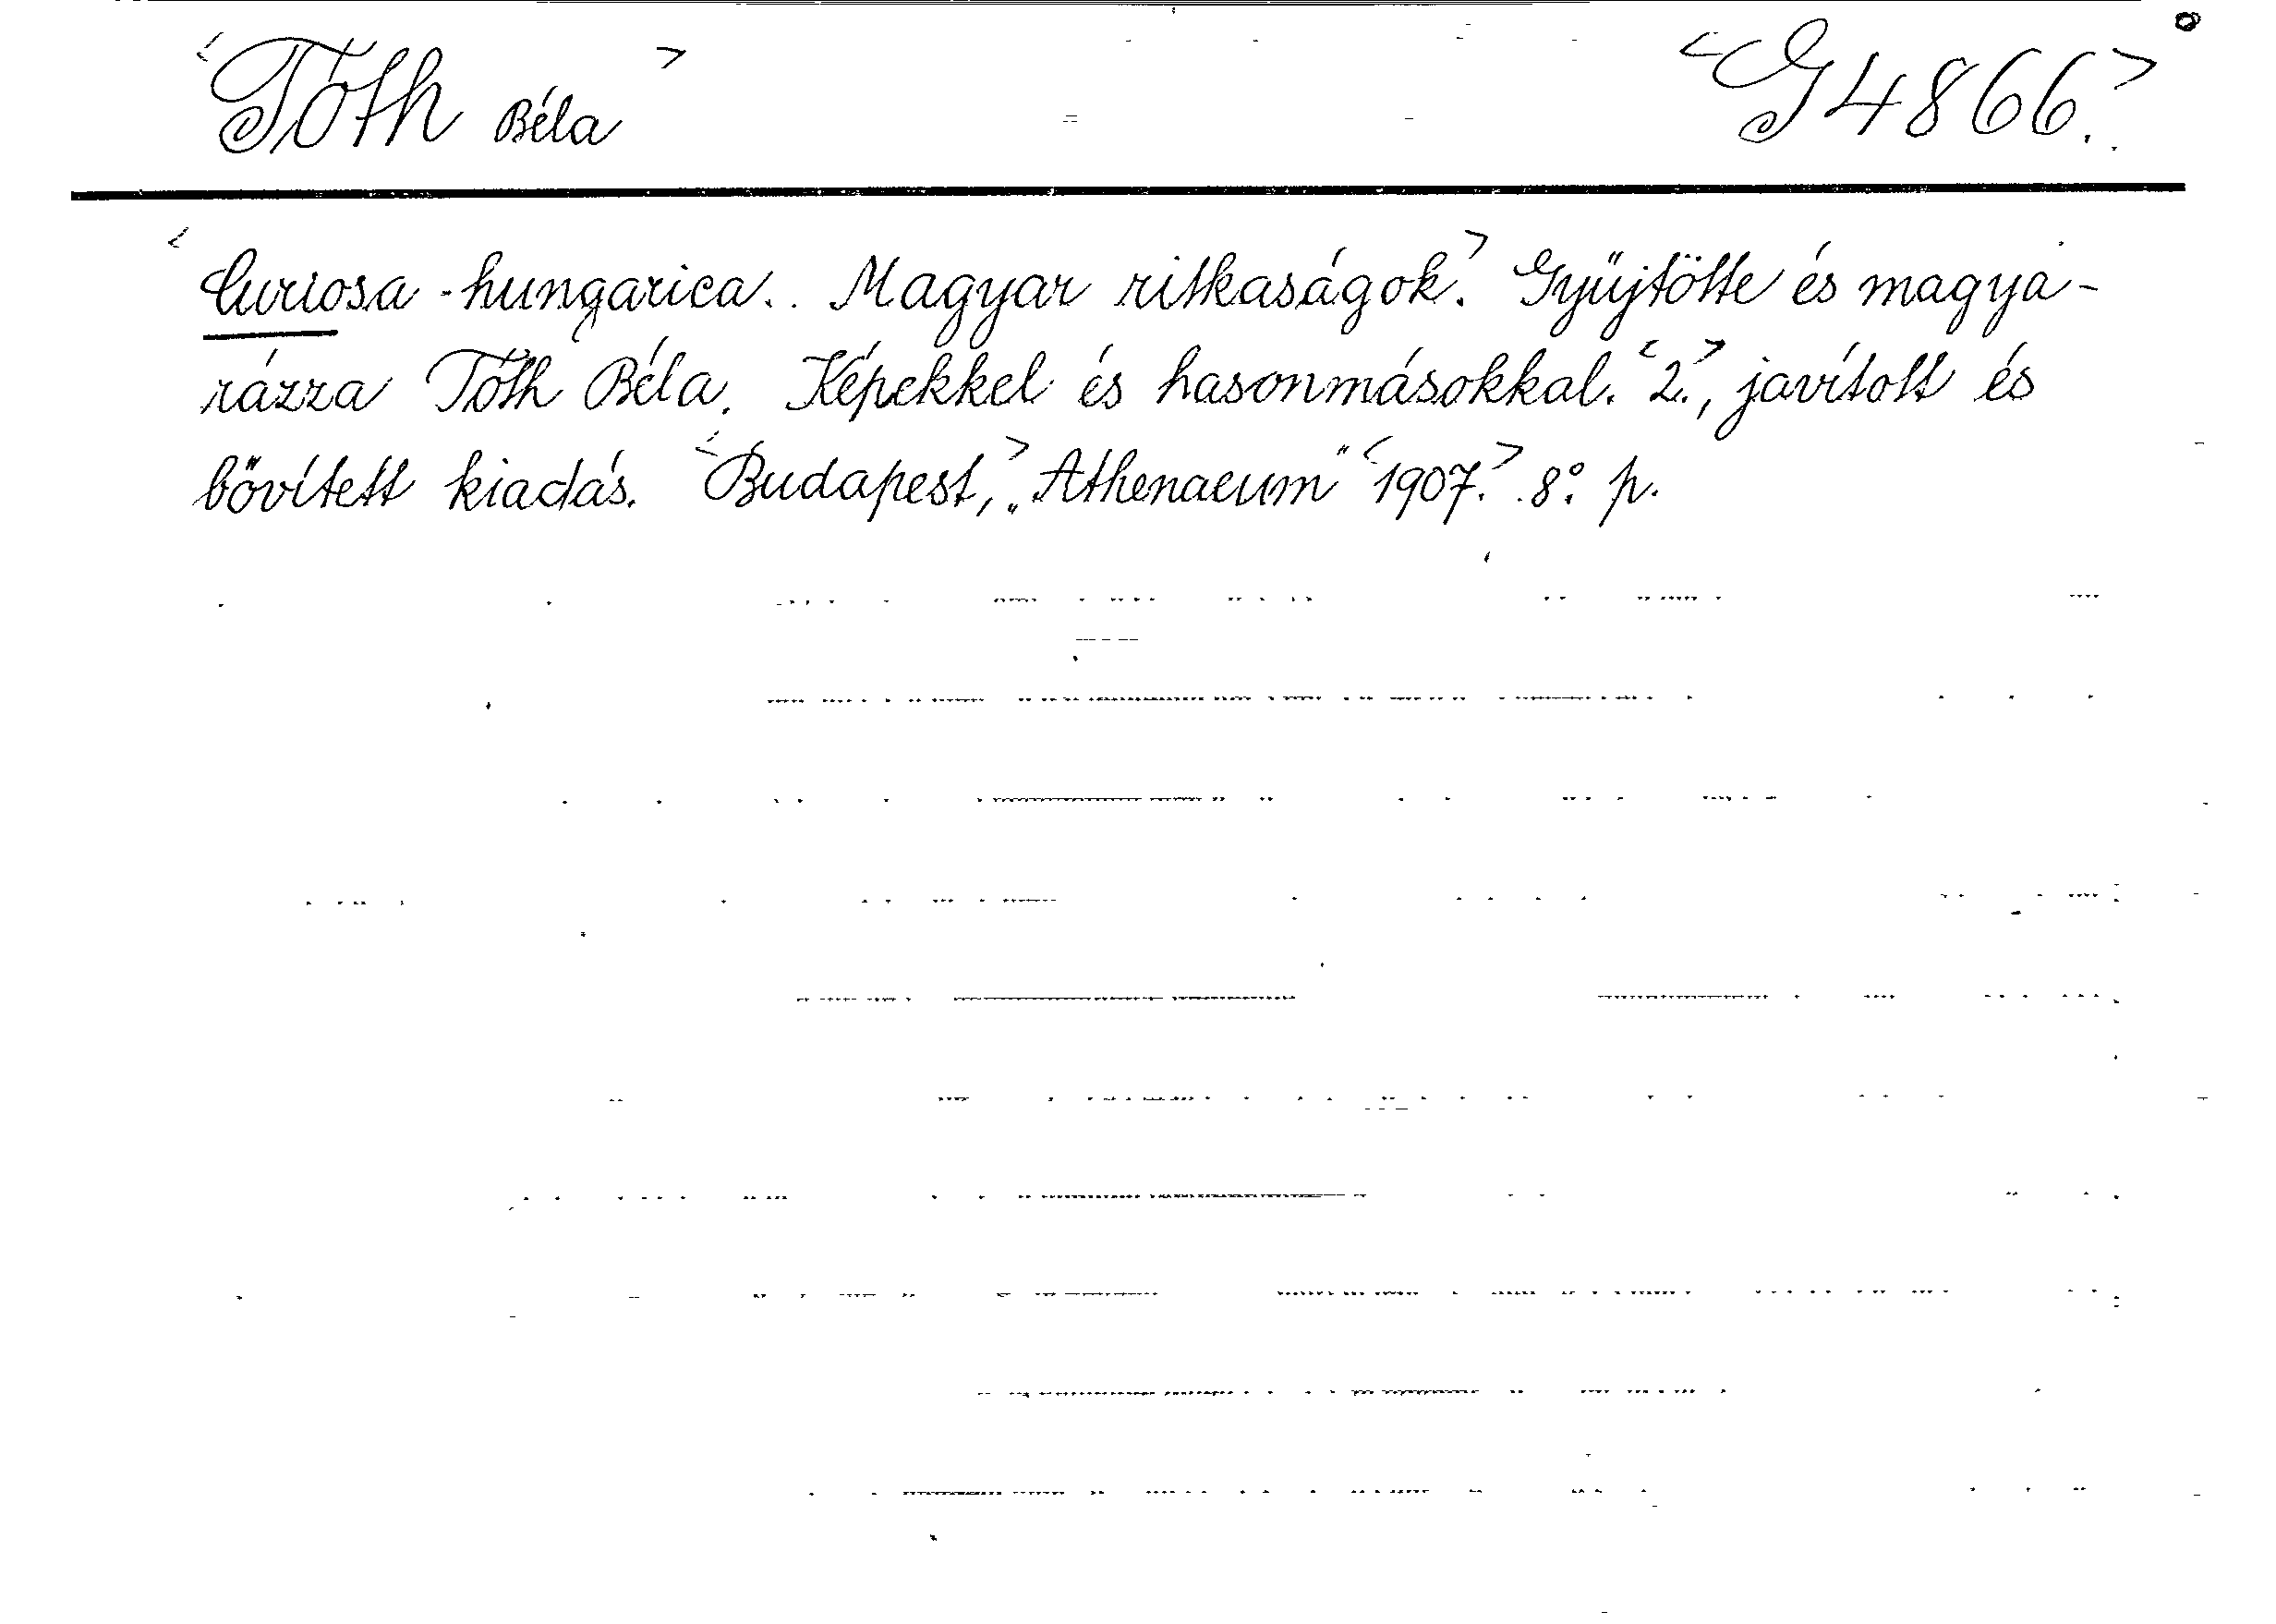 <Tóth Béla> <G 4866.>
<Curiosa-hungarica. Magyar ritkaságok.> Gyüjtötte és magya-
rázza Tóth Béla. Képekkel és hasonmásokkal. <2.>, javított és
bővített kiadás. <Budapest,> „Athenaeum" <1907.> 8.° p.